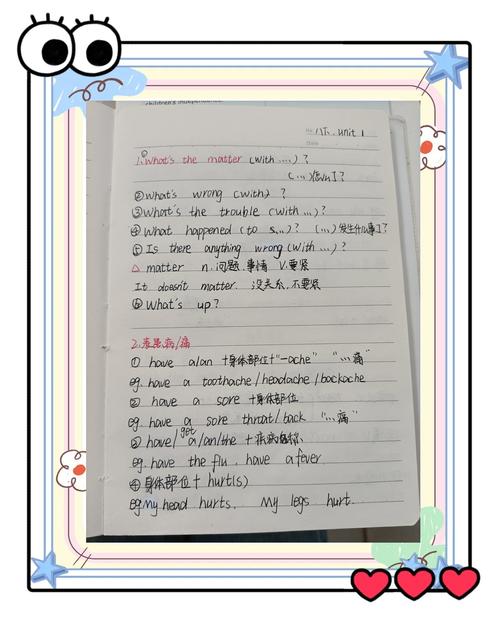 children's independence
八下. Unit 1
1.①What's the matter (with ...) ?
(...)怎么了?
②what's wrong (with) ?
③What's the trouble (with ...) ?
④ What happened (to s...) ? (...)发生什么事了?
⑤ Is there anything wrong (with ...) ?
△ matter n. 问题. 事情 V. 要紧
It doesn't matter. 没关系. 不要紧
⑥ What's up ?
2. 表星病/痛
① have a\an +身体部位+"-ache" "...痛"
eg. have a toothache/headache/backache
② have a sore +身体部位
eg. have a sore throat/back "...痛"
③ have/get a/an/the + 疾病名称
eg. have the flu . have a fever
④ 身体部位 + hurt(s)
eg My head hurts. My legs hurt.